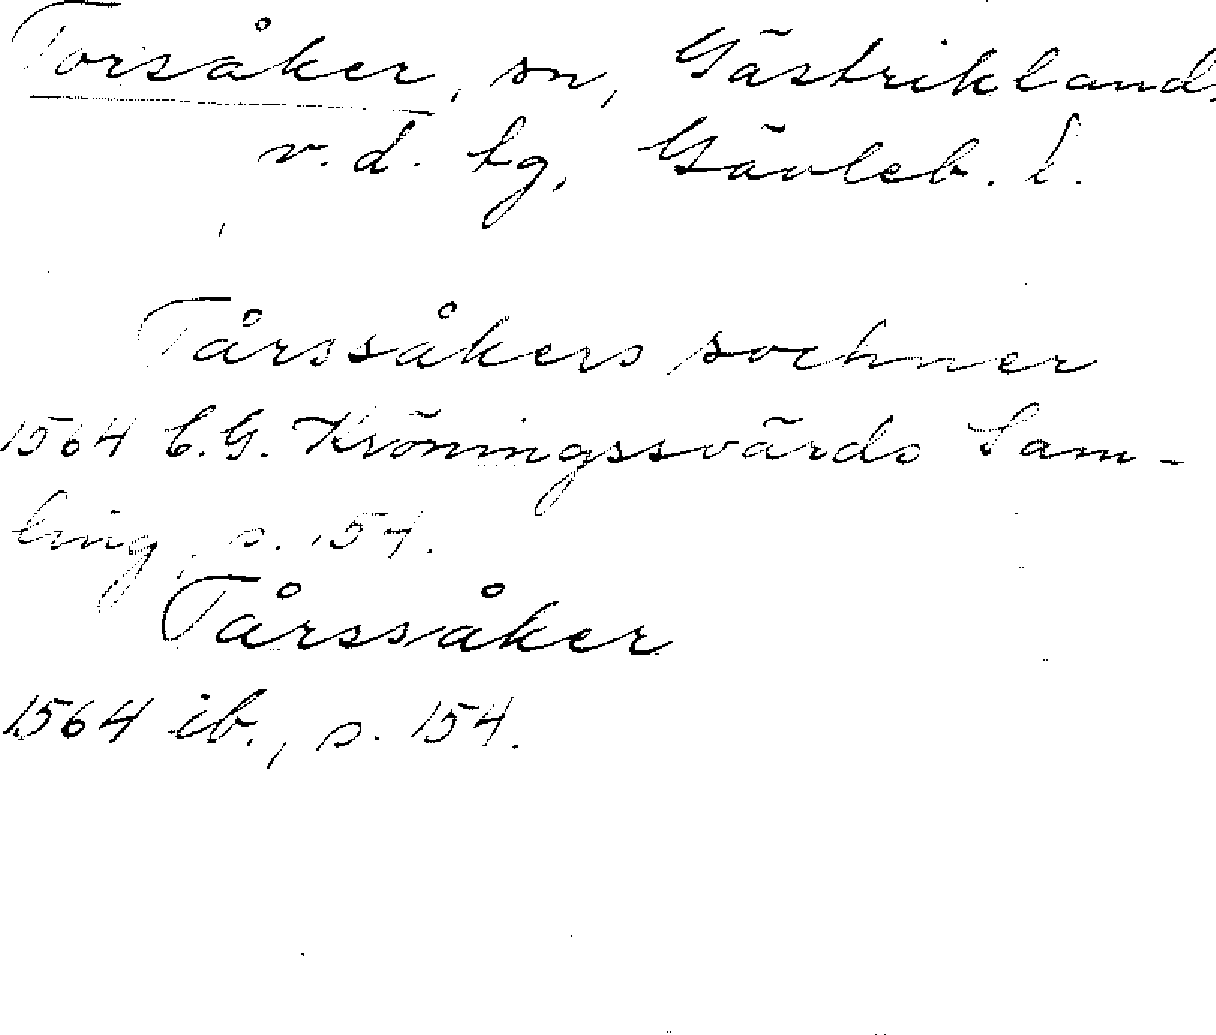 Torsåker, sn, Gästriklands
v.d. tg, Gävleb. l.
Tårssåkers sochner
1564 C.G. Kröningssvärds Sam-
ling, s. 154.
Tårssåker
1564 ib., s. 154.